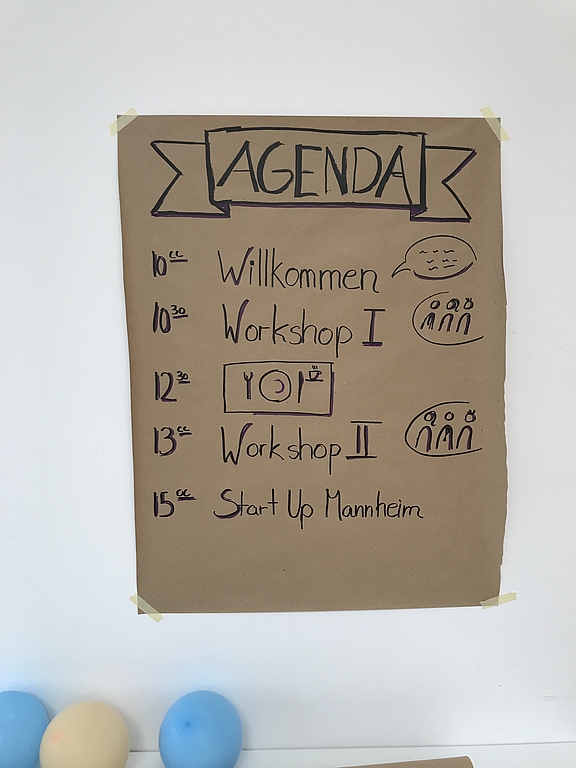 AGENDA
10⁰⁰ Willkommen
10³⁰ Workshop I
12³⁰
13⁰⁰ Workshop II
15⁰⁰ Start Up Mannheim